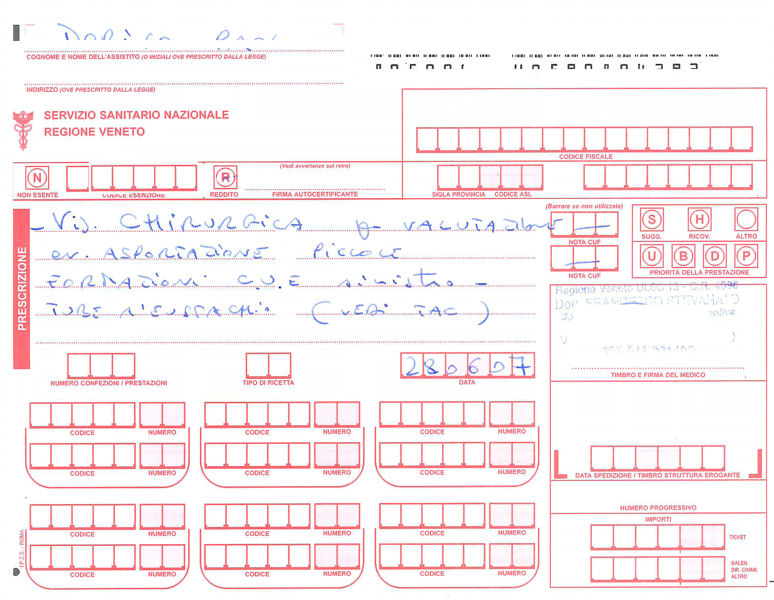 COGNOME E NOME DELL'ASSISTITO (O INIZIALI OVE PRESCRITTO DALLA LEGGE)
INDIRIZZO (OVE PRESCRITTO DALLA LEGGE)
SERVIZIO SANITARIO NAZIONALE
REGIONE VENETO
CODICE FISCALE
N
NON ESENTE
CODICE ESENZIONE
R
REDDITO
(Vedi avvertenze sul retro)
FIRMA AUTOCERTIFICANTE
SIGLA PROVINCIA CODICE ASL
PRESCRIZIONE
- Vis. CHIRURGICA VALUTAZIONE
ev. ASPORTAZIONE PICCOLE
FORMAZIONI C.U.E sinistro -
TUBE (VEDI TAC)
(Barrare se non utilizzate)
NOTA CUF
NOTA CUF
S H
SUGG. RICOV. ALTRO
U B D P
PRIORITÀ DELLA PRESTAZIONE
Regione Veneto
Dott. FRANCESCO
TIMBRO E FIRMA DEL MEDICO
NUMERO CONFEZIONI / PRESTAZIONI
TIPO DI RICETTA
280607
DATA
CODICE NUMERO CODICE NUMERO CODICE NUMERO
CODICE NUMERO CODICE NUMERO CODICE NUMERO
DATA SPEDIZIONE / TIMBRO STRUTTURA EROGANTE
CODICE NUMERO CODICE NUMERO CODICE NUMERO
CODICE NUMERO CODICE NUMERO CODICE NUMERO
NUMERO PROGRESSIVO
IMPORTI
TICKET
GALEN
DIR. CHIAM.
ALTRO
I.P.Z.S. - ROMA